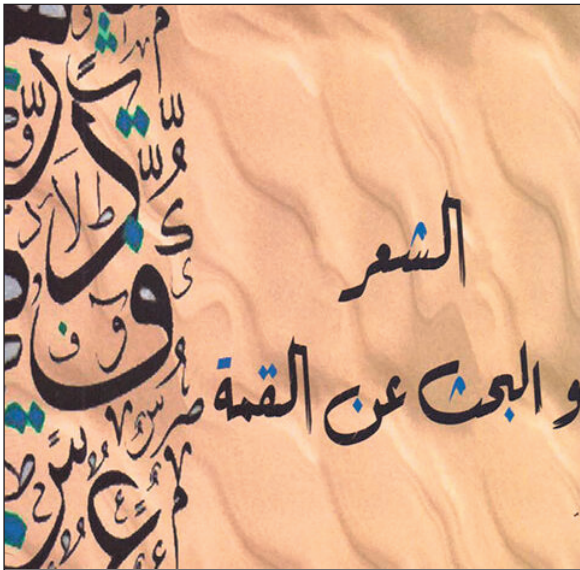 الشعر
و البحث عن القمة